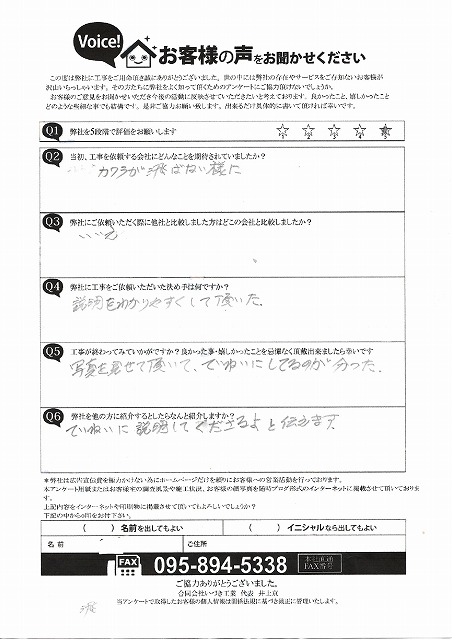 Voice!
お客様の声をお聞かせください
この度は弊社に工事をご用命頂き誠にありがとうございました。世の中には弊社の存在やサービスをご存知ないお客様が
沢山いらっしゃいます。その方たちに弊社をよく知って頂くためのアンケートにご協力頂けないでしょうか。
お客様のご意見をお聞かせいただき今後の活動に反映させていただきたいと考えております。良かったこと、嬉しかったこと
どのような些細な事でも結構です。是非ご協力お願い致します。出来るだけ具体的に書いて頂ければ幸いです。
Q1 弊社を5段階で評価をお願いします
Q2 当初、工事を依頼する会社にどんなことを期待されていましたか?
カワラが飛ばない様に
Q3 弊社にご依頼いただく際に他社と比較しました方はどこの会社と比較しましたか?
いいえ
Q4 弊社に工事をご依頼いただいた決め手は何ですか?
説明をわかりやすくして頂いた.
Q5 工事が終わってみていかがですか?良かった事・嬉しかったことを忌憚なく頂戴出来ましたら幸いです
写真を見せて頂いて、ていねいにしてるのが分った.
Q6 弊社を他の方に紹介するとしたらなんと紹介しますか?
ていねいに説明してくださるよと伝えます.
*弊社は広告宣伝費を極力かけない為にホームページだけを頼りにお客様への営業活動を行っております。
本アンケート用紙またはお客様宅の調査風景や施工状況、お客様の顔写真を随時ブログ形式のインターネットに掲載させて頂いておりま
す。
上記内容をインターネットや印刷物に掲載させて頂いてもよろしいでしょうか?
下記の中から○印をお付下さい。
( ) 名前を出してもよい ( ) イニシャルなら出してもよい
名 前 ご住所
FAX 095-894-5338 本社直通 FAX番号
ご協力ありがとうございました。
合同会社いづき工業 代表 井上京
当アンケートで取得したお客様の個人情報は関係法規に基づき厳正に管理いたします。